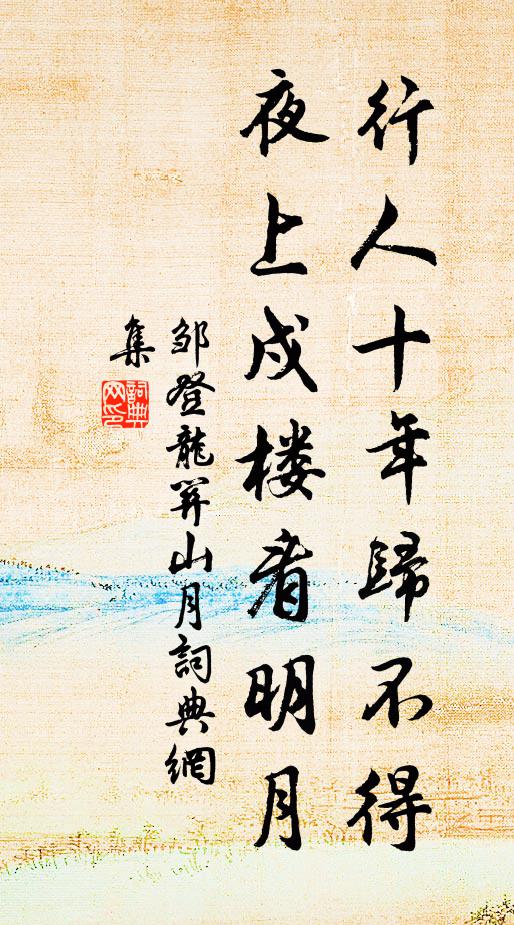 行人十年歸不得
夜上戍楼看明月
邹登龍關山月詞典網
集
詞典
网印